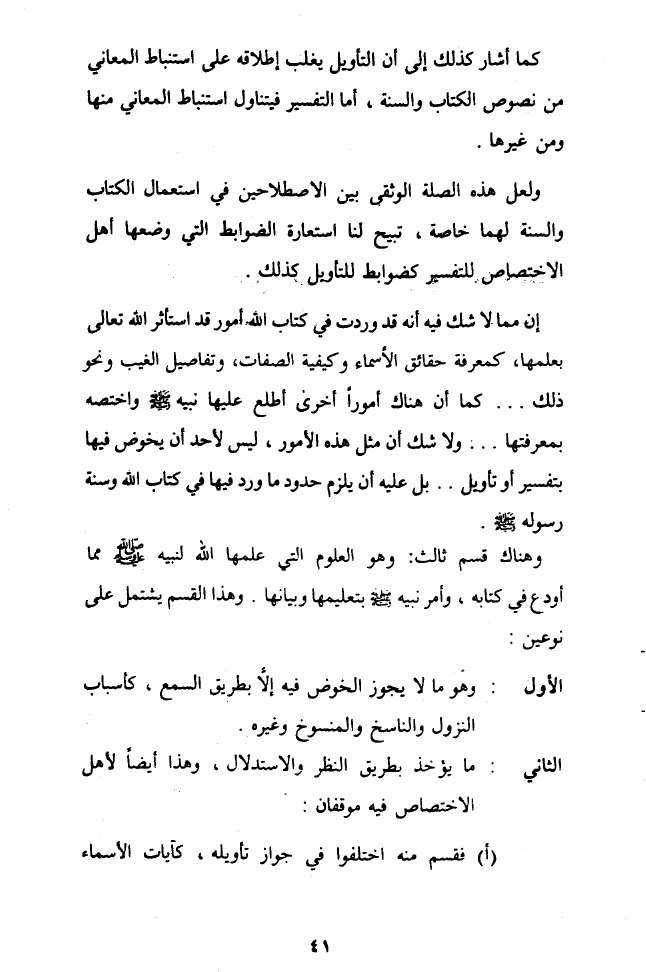 كما أشار كذلك إلى أن التأويل يغلب إطلاقه على استنباط المعاني
من نصوص الكتاب والسنة ، أما التفسير فيتناول استنباط المعاني منها
ومن غيرها .
ولعل هذه الصلة الوثقى بين الاصطلاحين في استعمال الكتاب
والسنة لهما خاصة ، تبيح لنا استعارة الضوابط التي وضعها أهل
الاختصاص للتفسير كضوابط للتأويل كذلك .
إن مما لا شك فيه أنه قد وردت في كتاب الله أمور قد استأثر الله تعالى
بعلمها، كمعرفة حقائق الأسماء وكيفية الصفات، وتفاصيل الغيب ونحو
ذلك ... كما أن هناك أموراً أخرى أطلع عليها نبيه ﷺ واختصه
بمعرفتها ... ولا شك أن مثل هذه الأمور ، ليس لأحد أن يخوض فيها
بتفسير أو تأويل .. بل عليه أن يلزم حدود ما ورد فيها في كتاب الله وسنة
رسوله ﷺ .
وهناك قسم ثالث: وهو العلوم التي علمها الله لنبيه ﷺ مما
أودع في كتابه ، وأمر نبيه ﷺ بتعليمها وبيانها . وهذا القسم يشتمل على
نوعين :
الأول : وهو ما لا يجوز الخوض فيه إلَّا بطريق السمع ، كأسباب
النزول والناسخ والمنسوخ وغيره .
الثاني : ما يؤخذ بطريق النظر والاستدلال ، وهذا أيضاً لأهل
الاختصاص فيه موقفان :
(أ) فقسم منه اختلفوا في جواز تأويله ، كآيات الأسماء
٤١